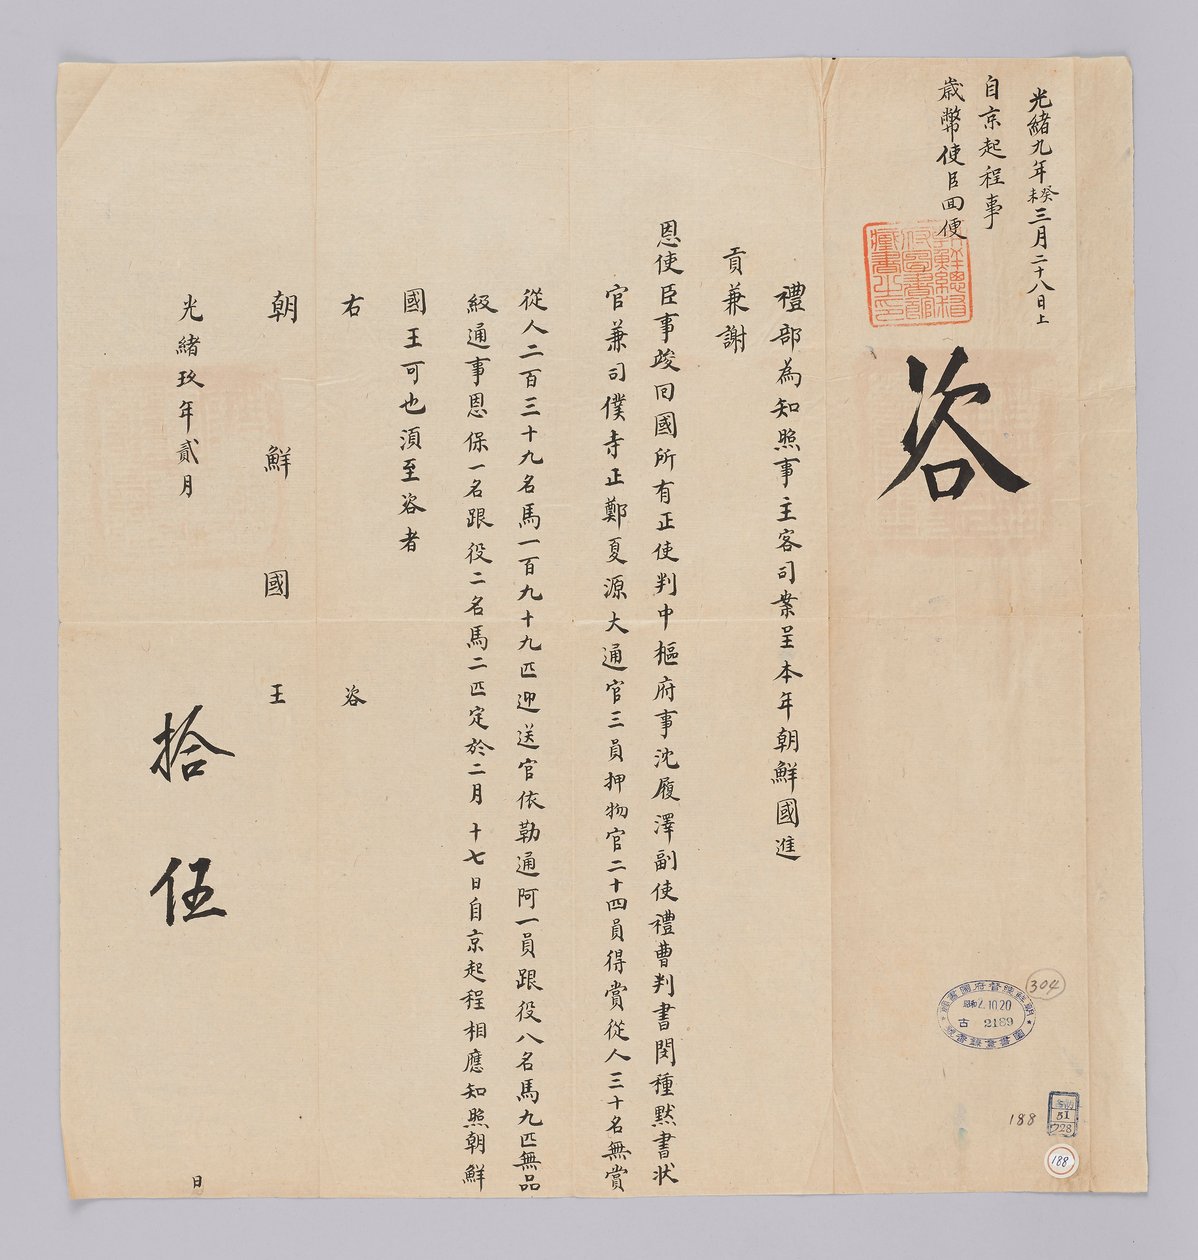 光緒九年癸未三月二十八日上
自京起程事
歲幣使臣回便
朝鮮總督府圖書館藏書之印
咨
禮部為知照事主客司案呈本年朝鮮國進
貢兼謝
恩使臣事竣回國所有正使判中樞府事沈履澤副使禮曹判書閔種默書狀
官兼司僕寺正鄭夏源大通官三員押物官二十四員得賞從人三十名無賞
從人二百三十九名馬一百九十九匹迎送官依勒通阿一員跟役八名馬九匹無品
級通事恩保一名跟役二名馬二匹定於二月十七日自京起程相應知照朝鮮
國王可也須至咨者
右咨
朝鮮國王
光緒玖年貳月拾伍日
304
朝鮮總督府圖書館
昭和2.10.20
古 2189
圖書登錄番號
188
51
728
188